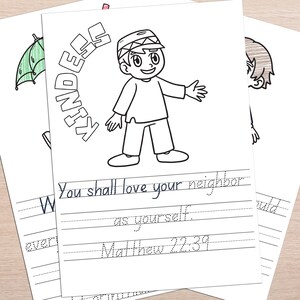 KINDESS
You shall love your neighbor
as yourself.
Matthew 22:39
W
ould
ever